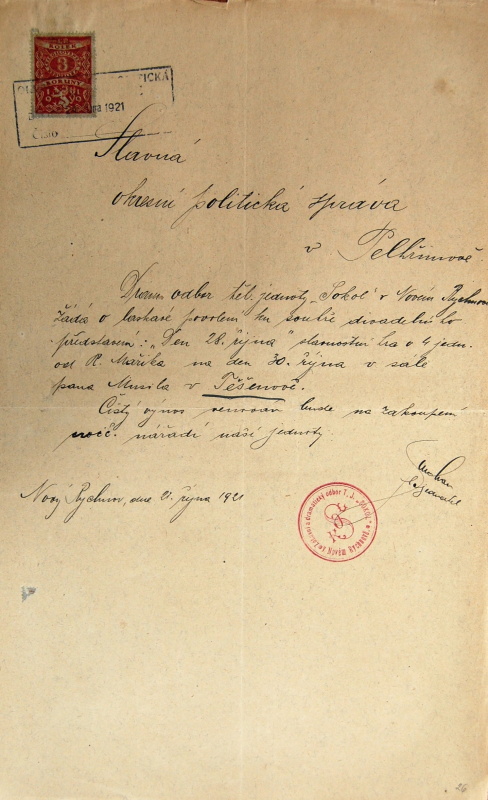 KOLEK
3
KORUNY
1921
Číslo
Slavná
okresní politická správa
v Pelhřimově.
Dram. odbor těl. jednoty „Sokol" v Novém Rychnově
žádá o laskavé povolení ku sehrání divadelního
představení: „Den 28. října" slavnostní hra o 4 jedn.
od R. Maříka na den 30. října v sále
pana Musila v Těšenově.
Čistý výnos věnován bude na zakoupení
nářadí naší jednoty.
Nový Rychnov, dne 21. října 1921
dramatický odbor T. J. „SOKOL"
v Novém Rychnově.
SOKOL
26